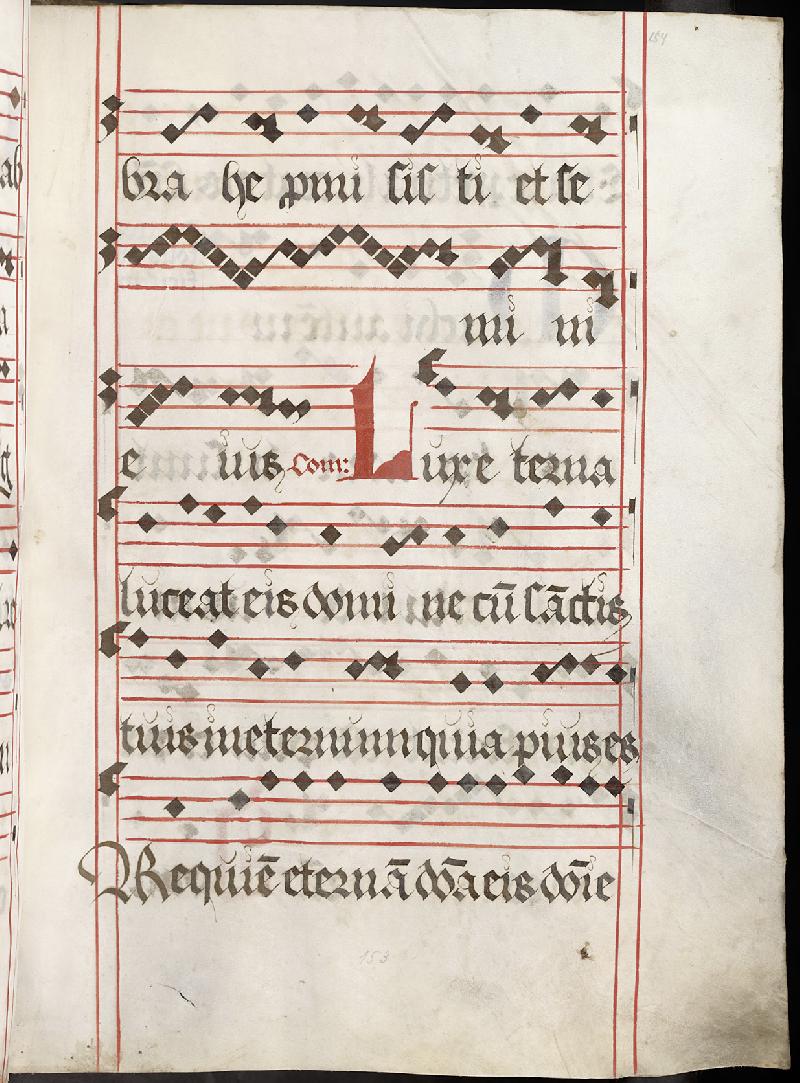 154
bra he pmi sis ti et se
mi ni
e ius Com: Lux e terna
luceat eis domi ne cū sāctis
tuis in eternum quia pius es
Requiē eternā dōa eis dōie
153